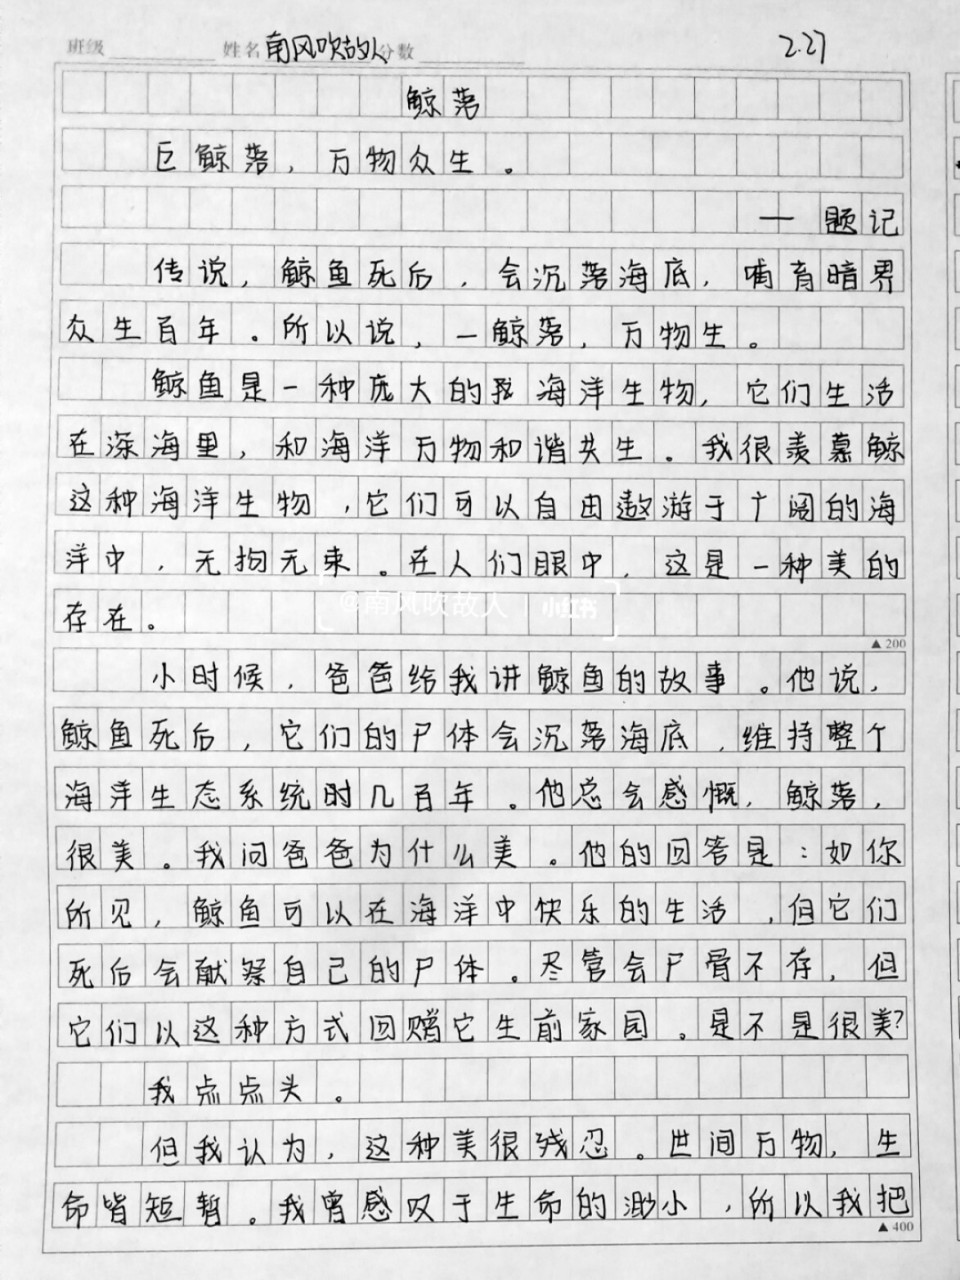 班级 姓名 南风吹故人 分数 2.27
鲸落
巨鲸落，万物众生。
——题记
传说，鲸鱼死后，会沉落海底，哺育暗界
众生百年。所以说，一鲸落，万物生。
鲸鱼是一种庞大的海洋生物，它们生活
在深海里，和海洋万物和谐共生。我很羡慕鲸
这种海洋生物，它们可以自由遨游于广阔的海
洋中，无拘无束。在人们眼中，这是一种美的
存在。
@南风吹故人 | 小红书
▲200
小时候，爸爸给我讲鲸鱼的故事。他说，
鲸鱼死后，它们的尸体会沉落海底，维持整个
海洋生态系统时几百年。他总会感慨，鲸落，
很美。我问爸爸为什么美。他的回答是：如你
所见，鲸鱼可以在海洋中快乐的生活，但它们
死后会献祭自己的尸体。尽管会尸骨不存，但
它们以这种方式回赠它生前家园。是不是很美？
我点点头。
但我认为，这种美很残忍。世间万物，生
命皆短暂。我曾感叹于生命的渺小，所以我把
▲400